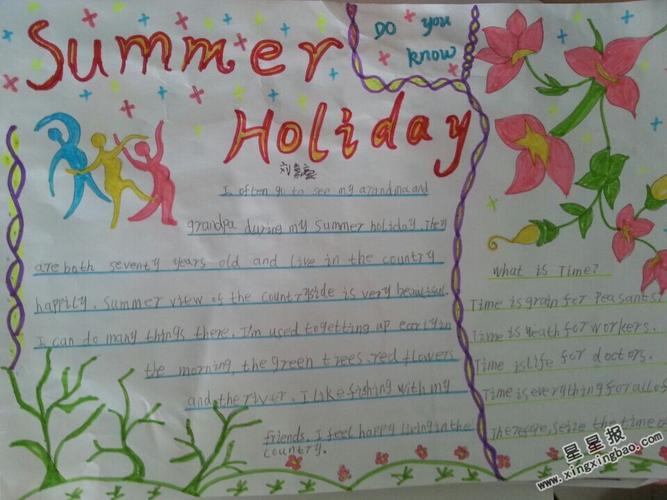 Summer
Holiday
Do you
know
I often go to see my grandma and
grandpa during my summer holiday. They
are both seventy years old and live in the country
happily. Summer view of the countryside is very beautiful.
I can do many things there. I'm used togetting up earlyin
the morning, the green trees. red flowers
and the river. I like fishing with my
friends. I feel happy living in the
country.
What is Time?
Time is grain for Peasants
Time is for workers.
Time is life for doctors.
Time is everything for all of
Therefore, seize the time
星星报
www.xingxingbao.com